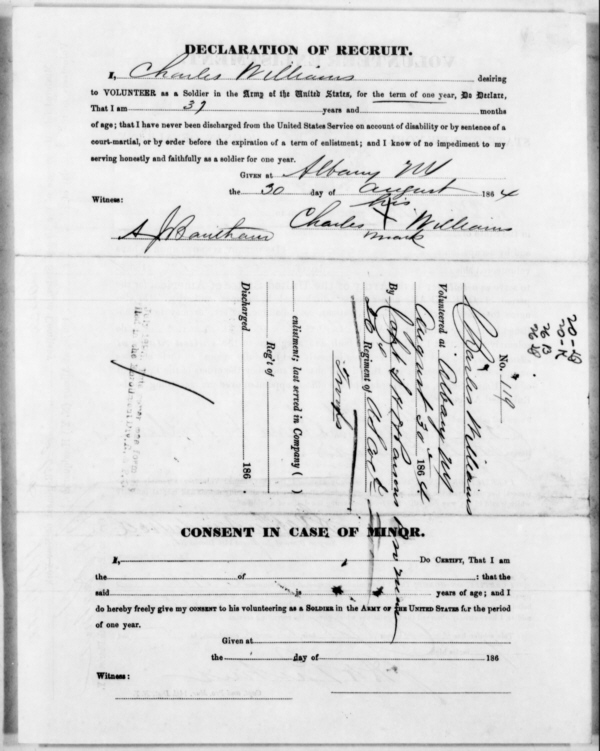 DECLARATION OF RECRUIT.
I, Charles Williams desiring
to VOLUNTEER as a Soldier in the Army of the United States, for the term of one year, Do Declare,
That I am 39 years and months
of age; that I have never been discharged from the United States Service on account of disability or by sentence of a
court-martial, or by order before the expiration of a term of enlistment; and I know of no impediment to my
serving honestly and faithfully as a soldier for one year.
GIVEN at Albany NY
the 30 day of August 1864
Witness:
his
Charles X Williams
mark
No. 119
Charles Williams
Volunteered at Albany NY
August 30 1864
By Capt
20 Regiment of U S Cold
Troops
enlistment; last served in Company ( )
Reg't of
Discharged 186
CONSENT IN CASE OF MINOR.
I, Do CERTIFY, That I am
the of : that the
said is years of age; and I
do hereby freely give my CONSENT to his volunteering as a SOLDIER in the ARMY OF THE UNITED STATES for the period
of one year.
Given at
the day of 186
Witness: